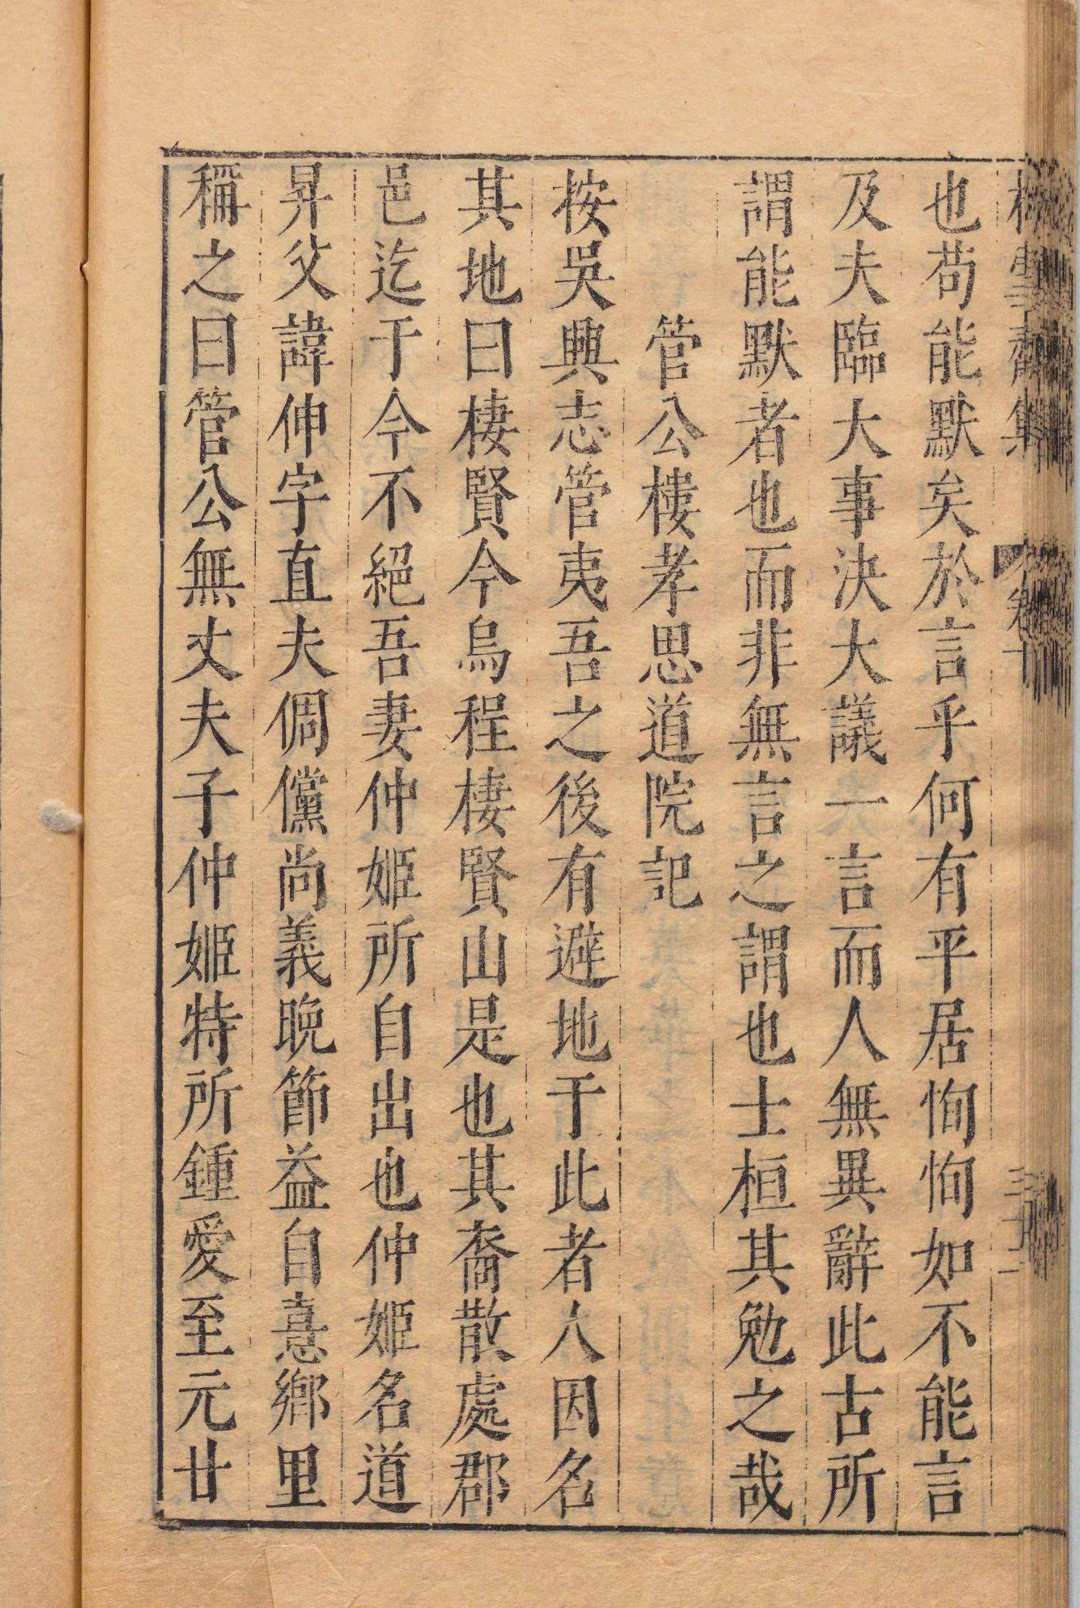 也苟能默矣於言乎何有平居恂恂如不能言
及夫臨大事決大議一言而人無異辭此古所
謂能默者也而非無言之謂也士桓其勉之哉
管公樓孝思道院記
按吳興志管夷吾之後有避地于此者人因名
其地曰棲賢今烏程棲賢山是也其裔散處郡
邑迄于今不絕吾妻仲姬所自出也仲姬名道
昇父諱伸字直夫倜儻尚義晚節益自憙鄉里
稱之曰管公無丈夫子仲姬特所鍾愛至元廿